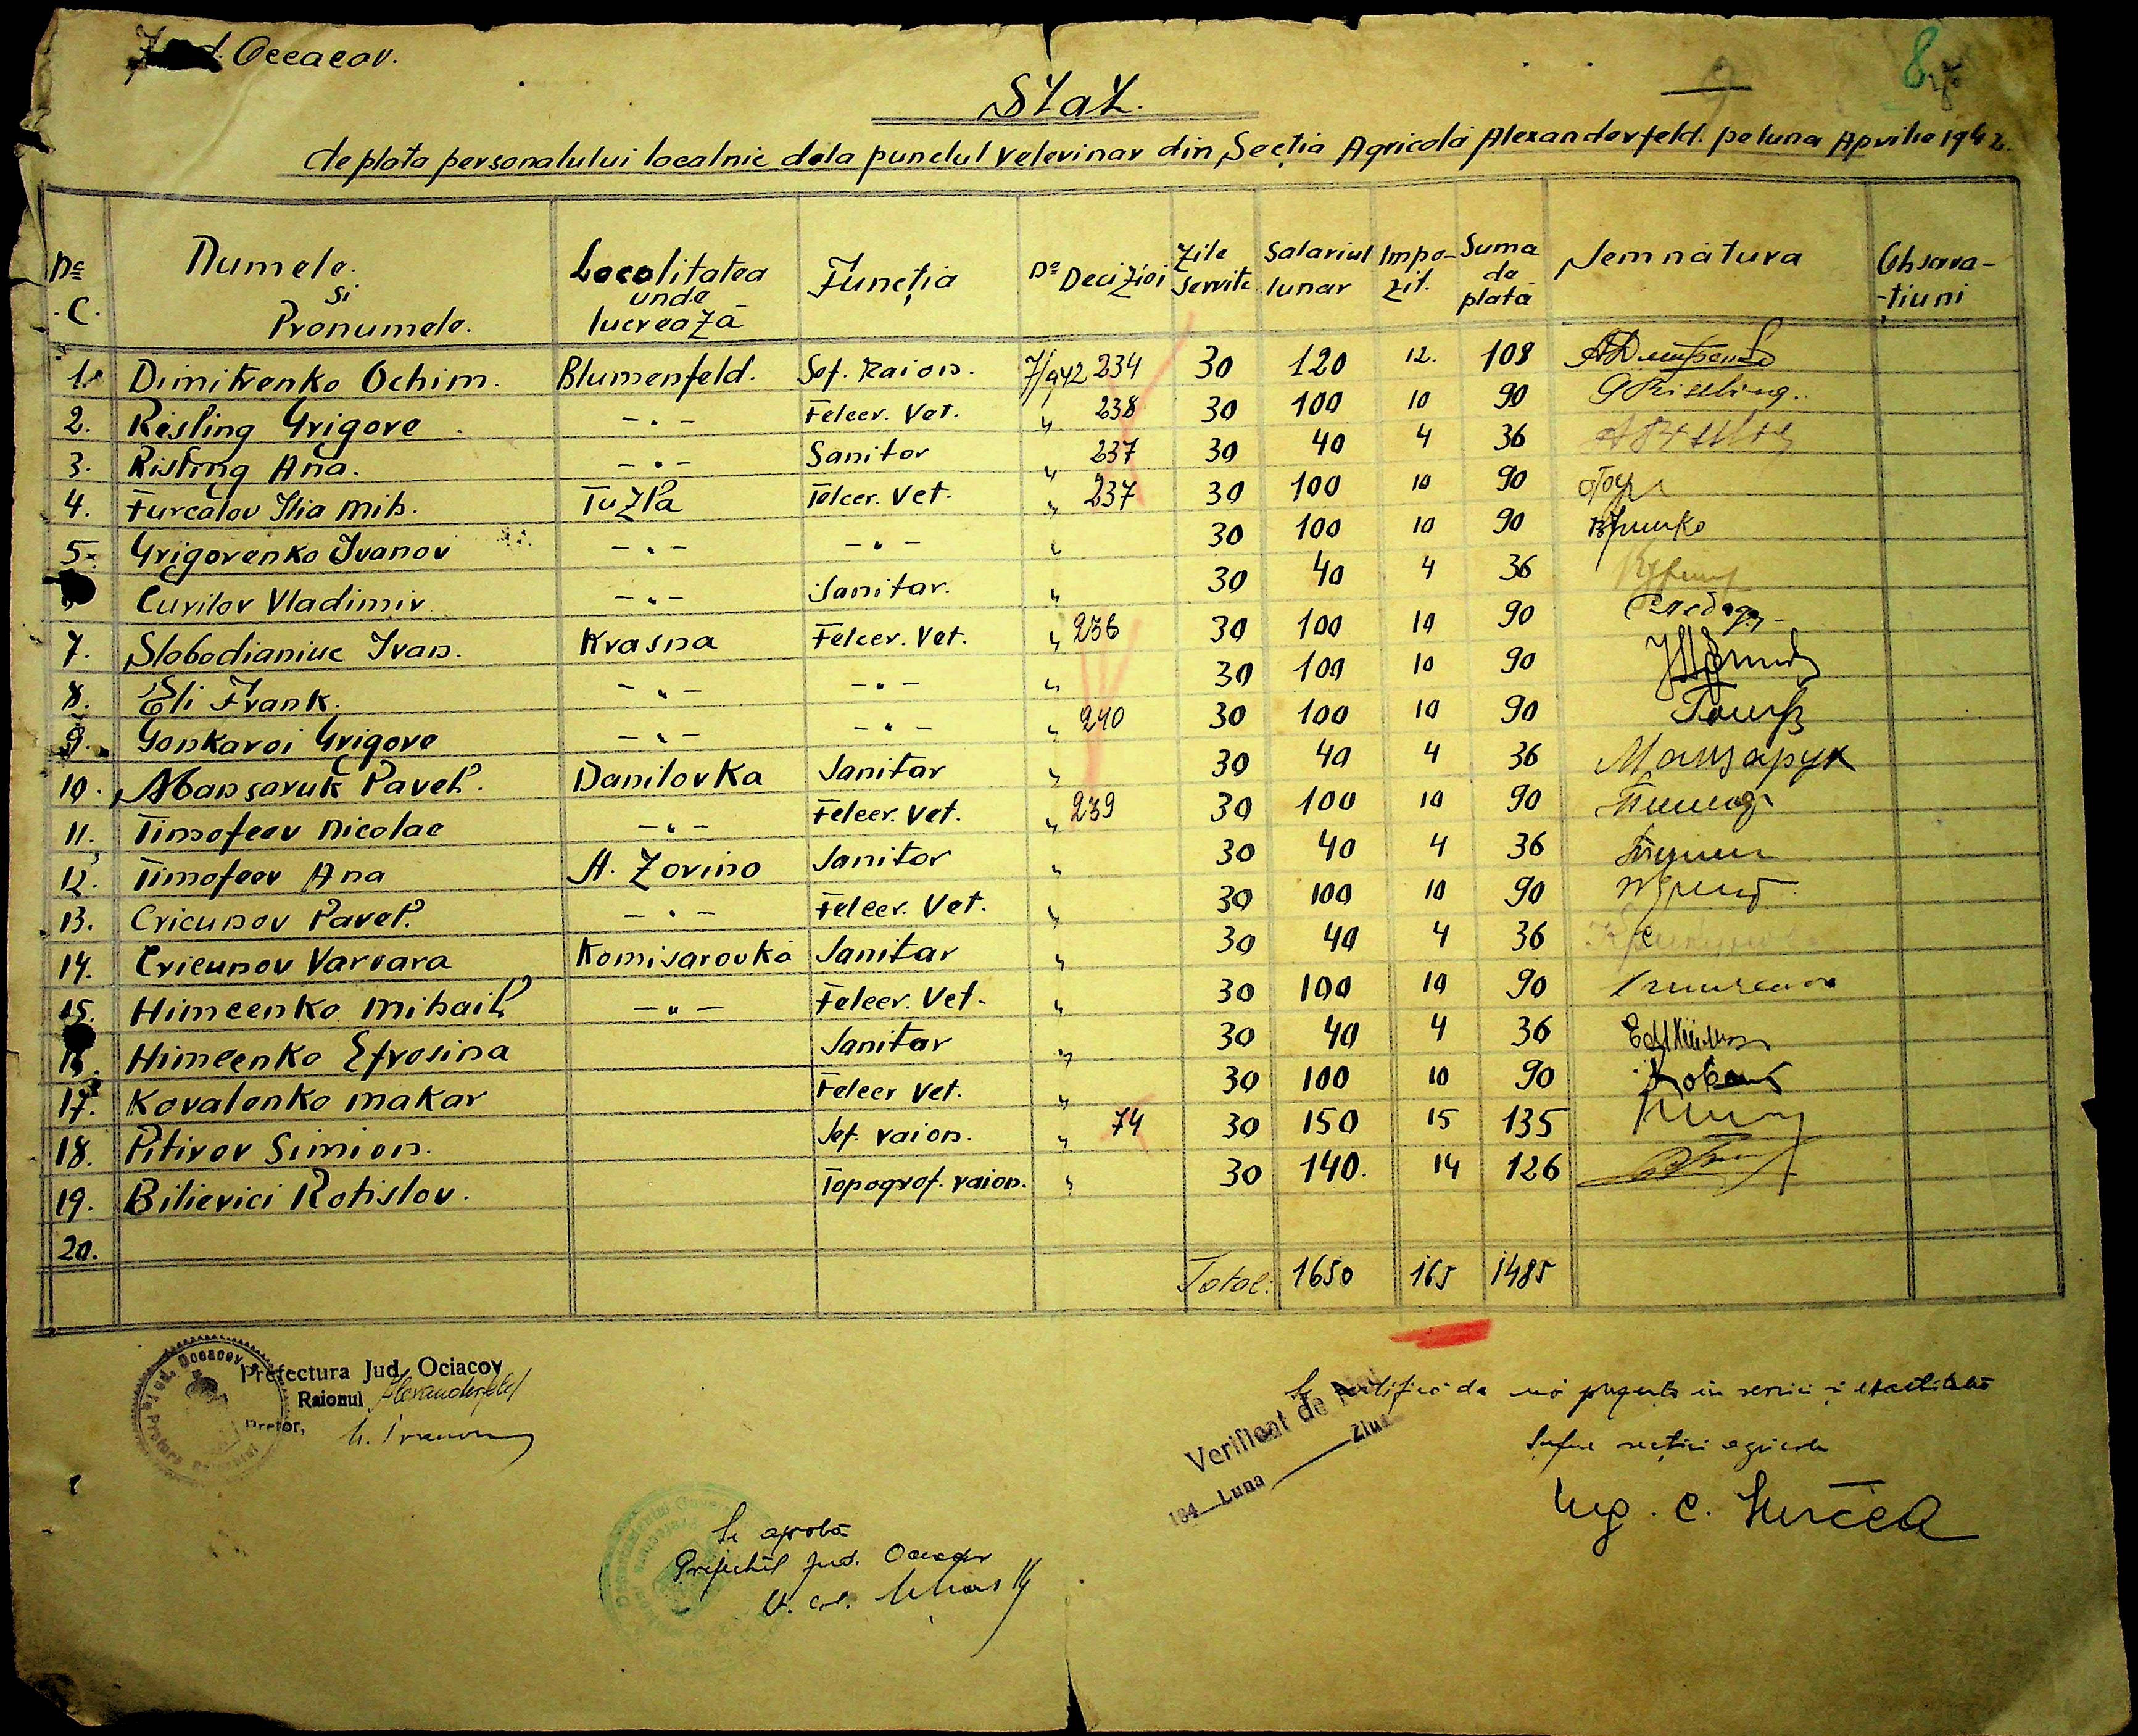 Jud. Oceacov.
8
Stat.
de plata personalului localnic dela punctul veterinar din Secția Agricolă Alexanderfeld. pe luna Aprilie 1942.
No C. Numele și Pronumele. Localitatea unde lucrează Funcția No Deciziei Zile servite Salariul lunar Impo-zit. Suma de plată Semnătura Observa-țiuni
1. Dimitrenko Ochim. Blumenfeld. Șef. Raion. 7/942 234 30 120 12. 108
2. Risling Grigore - " - Felcer. Vet. " 238 30 100 10 90 G Rissling.
3. Risling Ana. - " - Sanitar " 237 30 40 4 36
4. Furcalov Ilia Mih. Tuzla Felcer. Vet. " 237 30 100 10 90
5. Grigorenko Ivanov - " - - " - " 30 100 10 90
Curilov Vladimir - " - Sanitar. " 30 40 4 36
7. Slobodianiuc Ivan. Krasna Felcer. Vet. " 236 30 100 10 90
8. Eli Frank. - " - - " - " 30 100 10 90
9. Gonkaroi Grigore - " - - " - " 240 30 100 10 90
10. Mansaruk Pavel. Danilovka Sanitar " 30 40 4 36 Манзарук
11. Timofeev Nicolae - " - Felcer. Vet. " 239 30 100 10 90
12. Timofeev Ana A. Zorino Sanitar " 30 40 4 36
13. Cricunov Pavel. - " - Felcer. Vet. " 30 100 10 90
14. Cricunov Varvara Komisarovka Sanitar " 30 40 4 36
15. Himcenko Mihail - " - Felcer. Vet. " 30 100 10 90
16. Himcenko Efrosina Sanitar " 30 40 4 36
17. Kovalenko Makar Felcer Vet. " 30 100 10 90
18. Pitirov Simion. Șef. raion. " 74 30 150 15 135
19. Bilievici Rotislov. Topograf. raion. " 30 140. 14 126
20.
Total. 1650 165 1485
Prefectura Jud. Ociacov
Raionul Alexanderfeld
Pretor,
Verificat de
194 Luna Ziua
Se certifică de noi prezența în serviciu și exactitatea
Șeful secției agricole
Ing. C.
Se aprobă
Prefectul Jud. Oceacov
Lt. Col.